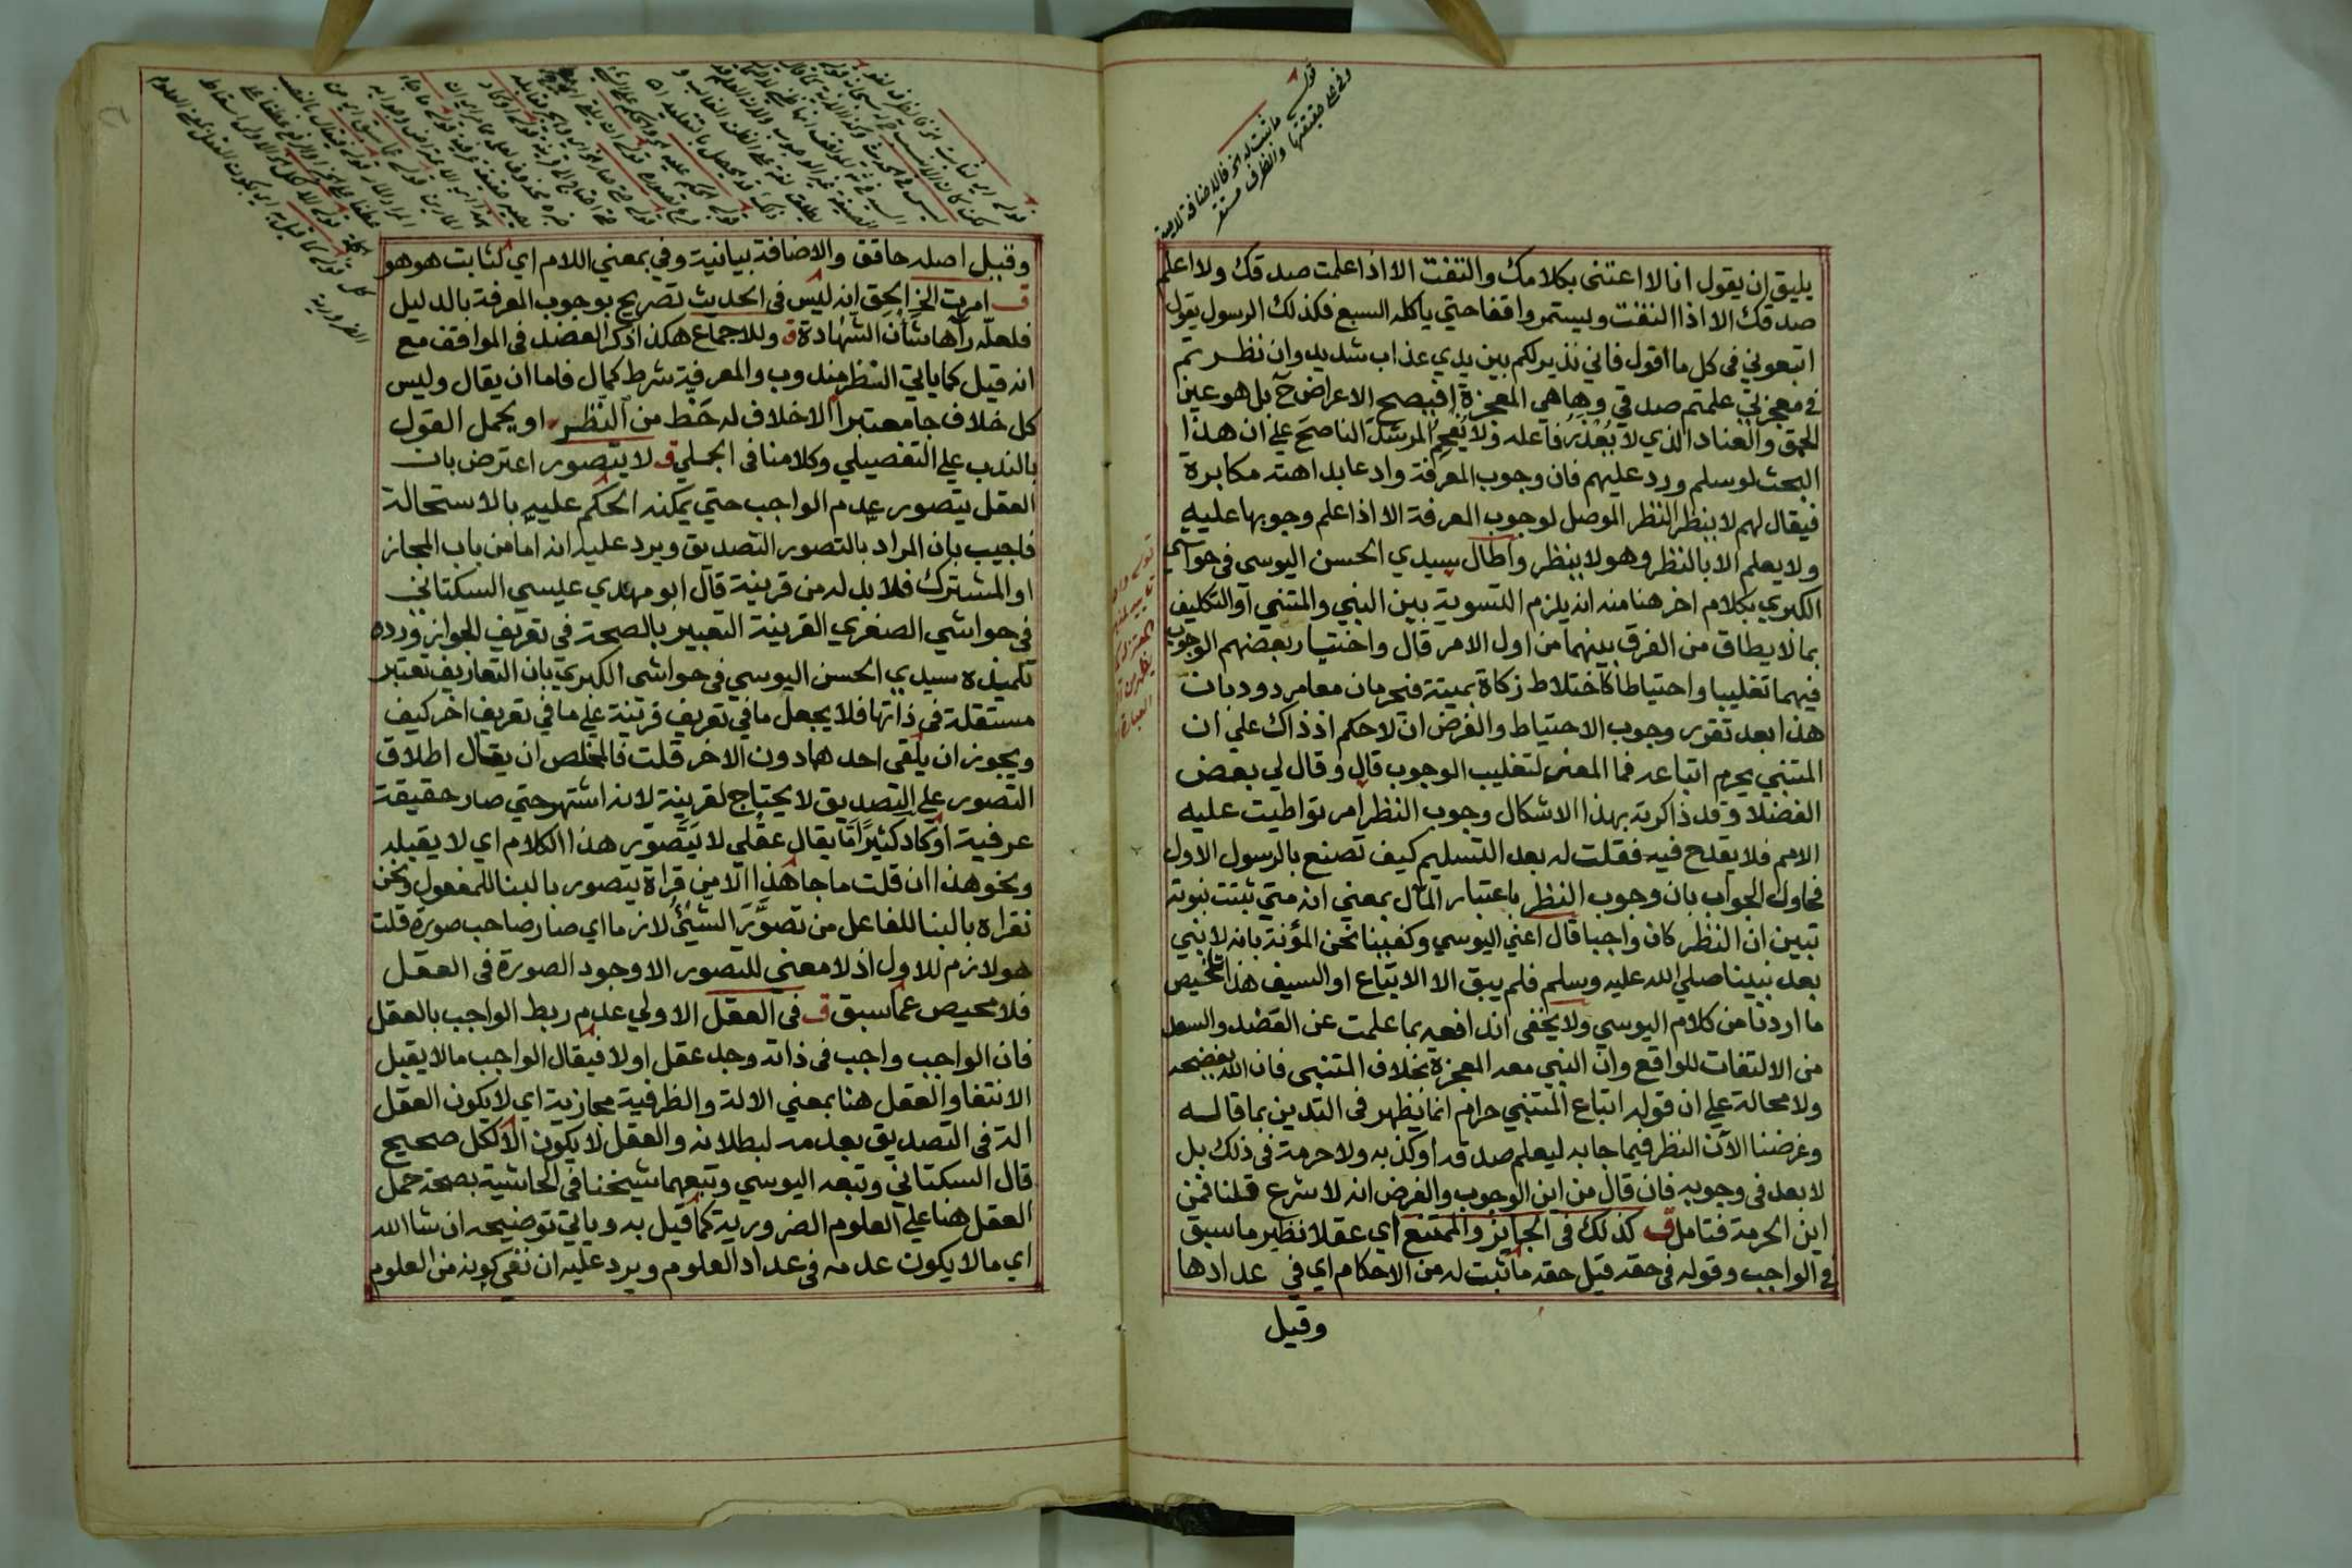 قوله ما ثبت له الخ فالاضافة لامية
وفي على حقيقتها والظرف مستقر
يليق ان يقول انا لا اعتنى بكلامك والتفت الا اذا علمت صدقك ولا اعلم
صدقك الا اذا التفت ويستمر واقفا حتي ياكله السبع فكذلك الرسول يقول
اتبعوني في كل ما اقول فاني نذير لكم بين يدي عذاب شديد وان نظرتم
في معجزتي علمتم صدقي وها هي المعجزة افيصح الاعراض ح بل هو عين
الحمق والعناد الذي لا يُعْذَرُ فاعله ولا يُفْحِمُ المرشدَ الناصحَ علي ان هذا
البحث لو سلم ورد عليهم فان وجوب المعرفة وادعا بداهته مكابرة
فيقال لهم لا ينظر النظر الموصل لوجوب المعرفة الا اذا علم وجوبها عليه
ولا يعلم الا بالنظر وهو لا ينظر واطال سيدي الحسن اليوسي في حواشي
الكبري بكلام اخر هنا منه انه يلزم التسوية بين النبي والمتنبي او التكليف
بما لا يطاق من الفرق بينهما من اول الامر قال واختيار بعضهم الوجوب
فيهما تغليبا واحتياطا كاختلاط زكاة بميتة فتحرمان معا مردود بان
هذا بعد تقرر وجوب الاحتياط والفرض ان لا حكم اذ ذاك علي ان
المتنبي يحرم اتباعه فما المعني لتغليب الوجوب قال وقال لي بعض
الفضلا وقد ذاكرته بهذا الاشكال وجوب النظر امر تواطيت عليه
الامم فلا يقدح فيه فقلت له بعد التسليم كيف تصنع بالرسول الاول
فحاول الجواب بان وجوب النظر باعتبار المآل بمعني انه متي ثبتت نبوته
تبين ان النظر كان واجبا قال اعني اليوسي وكفينا نحن المؤنة بانه لا نبي
بعد نبينا صلي الله عليه وسلم فلم يبق الا الاتباع او السيف هذا تلخيص
ما اردنا من كلام اليوسي ولا يخفي اندافعه بما علمت عن العضد والسعد
من الالتفات للواقع وان النبي معه المعجزة بخلاف المتنبي فان الله يفضحه
ولا محالة علي ان قوله اتباع المتنبي حرام انما يظهر في التدين بما قاله
وغرضنا الآن النظر فيما جا به ليعلم صدقه او كذبه ولا حرمة في ذلك بل
لا بعد في وجوبه فان قال من اين الوجوب والفرض انه لا شرع قلنا فمن
اين الحرمة فتامل ق كذلك في الجائز والممتنع اي عقلا نظير ما سبق
في الواجب وقوله في حقه قيل حقه ما ثبت له من الاحكام اي في عدادها
وقيل
وقيل اصله حاقق والاضافة بيانية وفي بمعني اللام اي لثابت هو هو
ق امرت الخ الحق انه ليس في الحديث تصريح بوجوب المعرفة بالدليل
فلعله رآها شأن الشهادة ق وللاجماع هكذا ذكر العضد في المواقف مع
انه قيل كما ياتي النظر مندوب والمعرفية شرط كمال فاما ان يقال وليس
كل خلاف جا معتبرا الا خلاف له حَظ من النظر او يحمل القول
بالندب علي التفصيلي وكلامنا في الجملي ق لا يتصور اعترض بان
العقل يتصور عدم الواجب حتي يمكنه الحكم عليه بالاستحالة
فاجيب بان المراد بالتصور التصديق ويرد عليه انه اما من باب المجاز
او المشترك فلا بد له من قرينة قال ابو مهدي عيسي السكتاني
في حواشي الصغري القرينة التعبير بالصحة في تعريف الجواز ورده
تلميذه سيدي الحسن اليوسي في حواشي الكبري بان التعاريف تعتبر
مستقلة في ذاتها فلا يجعل ما في تعريف قرينة علي ما في تعريف اخر كيف
ويجوز ان يلقي احدهما دون الاخر قلت فالمخلص ان يقال اطلاق
التصور علي التصديق لا يحتاج لقرينة لانه اشتهر حتي صار حقيقة
عرفية او كاد كثيرًا مّا يقال عقلي لا يَتَصَوّر هذا الكلام اي لا يقبله
ونحو هذا ان قلت ما جا هذا الا من قراة يتصور بالبنا للمفعول ونحن
نقراه بالبنا للفاعل من تصوَّرَ الشيئُ لازما اي صار صاحب صورة قلت
هو لازم للاول اذ لا معني للتصور الا وجود الصورة في العقل
فلا محيص عما سبق ق في العقل الاولي عدم ربط الواجب بالعقل
فان الواجب واجب في ذاته وجد عقل اولا فيقال الواجب ما لا يقبل
الانتفا والعقل هنا بمعني الالة والظرفية مجازية اي لا يكون العقل
الة في التصديق بعدمه لبطلانه والعقل لا يكون الا لكل صحيح
قال السكتاني وتبعه اليوسي وتبعهما شيخنا في الحاشية بصحة حمل
العقل هنا علي العلوم الضرورية كما قيل به وياتي توضيحه ان شا الله
اي ما لا يكون عدمه في عداد العلوم ويرد عليه ان نفي كونه من العلوم